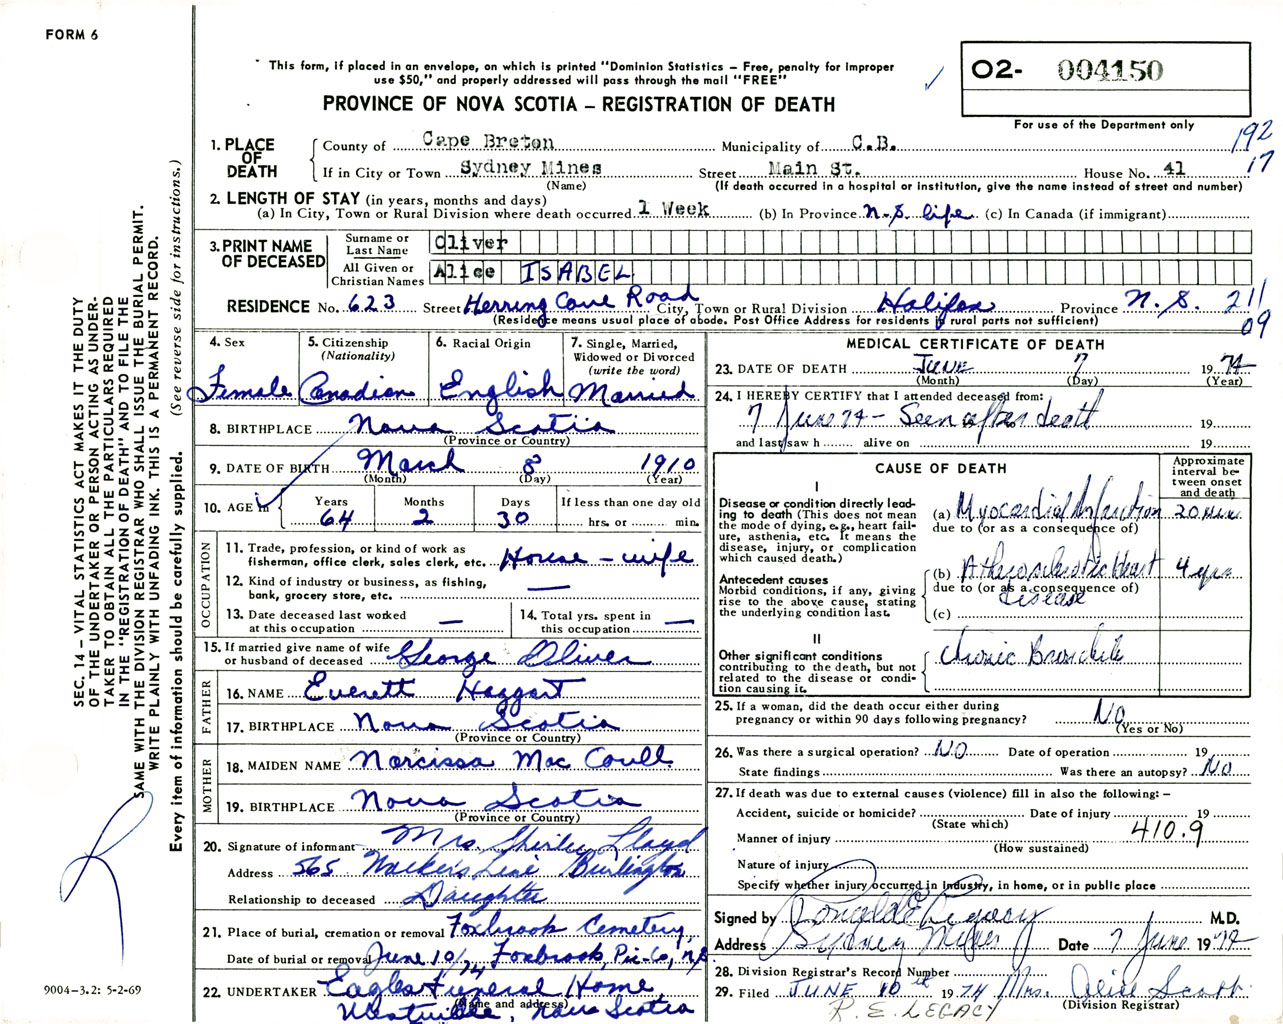 FORM 6
This form, if placed in an envelope, on which is printed "Dominion Statistics – Free, penalty for improper
use $50," and properly addressed will pass through the mail "FREE"
PROVINCE OF NOVA SCOTIA – REGISTRATION OF DEATH
O2- 004150
For use of the Department only
192
17
1. PLACE OF DEATH County of Cape Breton Municipality of C.B.
If in City or Town Sydney Mines Street Main St. House No. 41
(Name) (If death occurred in a hospital or institution, give the name instead of street and number)
2. LENGTH OF STAY (in years, months and days)
(a) In City, Town or Rural Division where death occurred 1 Week (b) In Province N.S. life (c) In Canada (if immigrant)
3. PRINT NAME OF DECEASED Surname or Last Name Oliver
All Given or Christian Names Alice ISABEL
RESIDENCE No. 623 Street Herring Cove Road City, Town or Rural Division Halifax Province N.S. 211
09
(Residence means usual place of abode. Post Office Address for residents of rural parts not sufficient)
4. Sex Female
5. Citizenship (Nationality) Canadian
6. Racial Origin English
7. Single, Married, Widowed or Divorced (write the word) Married
8. BIRTHPLACE Nova Scotia
(Province or Country)
9. DATE OF BIRTH March 8 1910
(Month) (Day) (Year)
10. AGE in Years 64 Months 2 Days 30 If less than one day old hrs. or min.
OCCUPATION
11. Trade, profession, or kind of work as fisherman, office clerk, sales clerk, etc. House-wife
12. Kind of industry or business, as fishing, bank, grocery store, etc. —
13. Date deceased last worked at this occupation —
14. Total yrs. spent in this occupation —
15. If married give name of wife or husband of deceased George Oliver
FATHER
16. NAME Everett Haggart
17. BIRTHPLACE Nova Scotia
(Province or Country)
MOTHER
18. MAIDEN NAME Narcissa Mac Coull
19. BIRTHPLACE Nova Scotia
(Province or Country)
20. Signature of informant Mrs. Shirley Lloyd
Address 565 Walker's Line Burlington
Relationship to deceased Daughter
21. Place of burial, cremation or removal Foxbrook Cemetery,
Date of burial or removal June 10/74 Foxbrook, Pic-Co, N.S.
22. UNDERTAKER Eagles Funeral Home
(Name and address)
Westville, Nova Scotia
MEDICAL CERTIFICATE OF DEATH
23. DATE OF DEATH JUNE 7 19 74
(Month) (Day) (Year)
24. I HEREBY CERTIFY that I attended deceased from:
7 June 74 - Seen after death 19
and last saw h alive on 19
CAUSE OF DEATH
Approximate interval between onset and death
I
Disease or condition directly leading to death (This does not mean the mode of dying, e.g., heart failure, asthenia, etc. It means the disease, injury, or complication which caused death.)
(a) Myocardial Infarction 20 min
due to (or as a consequence of)
Antecedent causes
Morbid conditions, if any, giving rise to the above cause, stating the underlying condition last.
(b) Atherosclerotic Heart disease 4 yrs
due to (or as a consequence of)
(c)
II
Other significant conditions contributing to the death, but not related to the disease or condition causing it.
Chronic Bronchitis
25. If a woman, did the death occur either during pregnancy or within 90 days following pregnancy? NO
(Yes or No)
26. Was there a surgical operation? NO Date of operation 19
State findings Was there an autopsy? NO
27. If death was due to external causes (violence) fill in also the following: –
Accident, suicide or homicide? Date of injury 19
(State which)
Manner of injury 410.9
(How sustained)
Nature of injury
Specify whether injury occurred in Industry, in home, or in public place
Signed by Ronald E Legacy M.D.
Address Sydney Mines Date 7 June 1974
28. Division Registrar's Record Number
29. Filed JUNE 10th 1974 Mrs. Alice Scott
(Division Registrar)
R. E. LEGACY
SEC. 14 – VITAL STATISTICS ACT MAKES IT THE DUTY
OF THE UNDERTAKER OR PERSON ACTING AS UNDER-
TAKER TO OBTAIN ALL THE PARTICULARS REQUIRED
IN THE "REGISTRATION OF DEATH" AND TO FILE THE
SAME WITH THE DIVISION REGISTRAR WHO SHALL ISSUE THE BURIAL PERMIT.
WRITE PLAINLY WITH UNFADING INK. THIS IS A PERMANENT RECORD.
Every item of information should be carefully supplied. (See reverse side for instructions.)
9004-3.2: 5-2-69